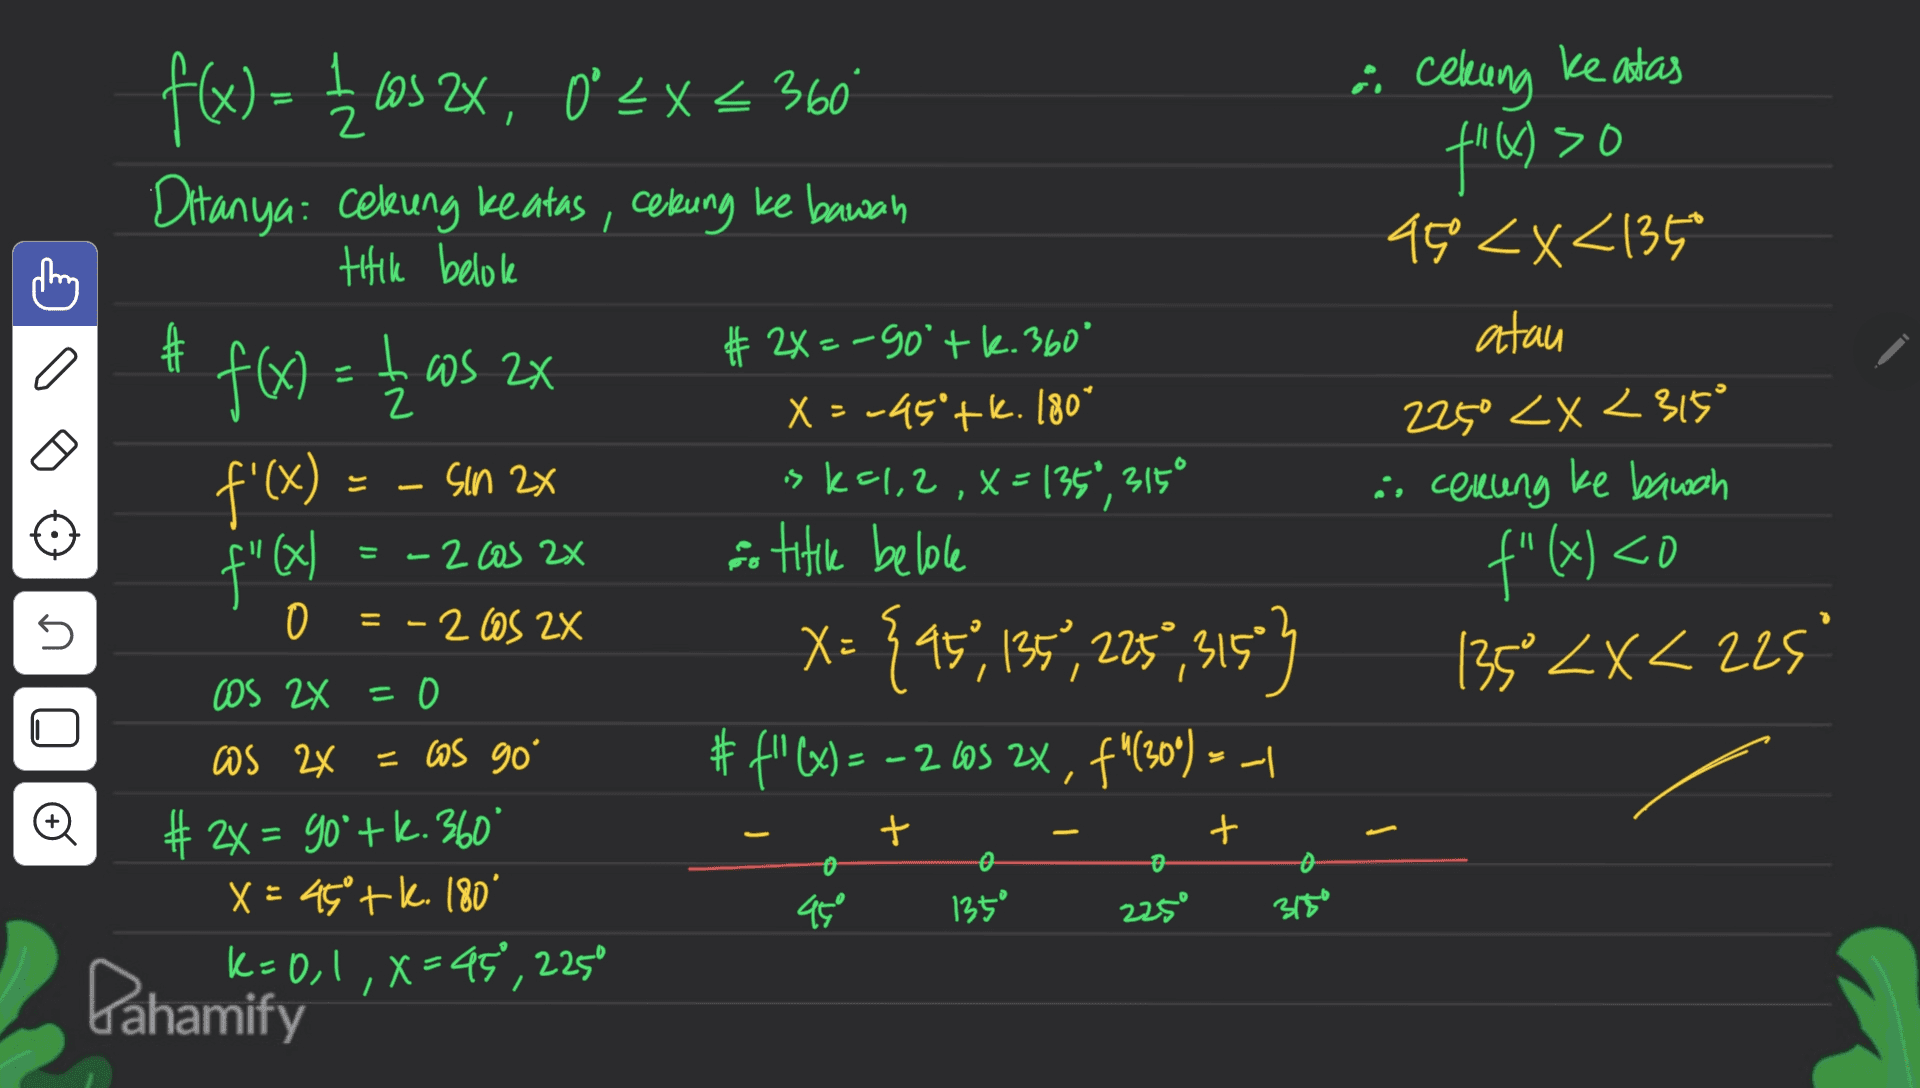 f(x) = 1/2 cos 2x, 0° ≤ x ≤ 360°
Ditanya: cekung keatas, cekung ke bawah
titik belok
# f(x) = 1/2 cos 2x
f'(x) = - sin 2x
f''(x) = -2 cos 2x
0 = -2 cos 2x
cos 2x = 0
cos 2x = cos 90°
# 2x = 90° + k. 360°
x = 45° + k. 180°
k=0,1, x = 45°, 225°
# 2x = -90° + k. 360°
x = -45° + k. 180°
k=1,2, x = 135°, 315°
∴ titik belok
x = {45°, 135°, 225°, 315°}
# f''(x) = -2 cos 2x, f''(30°) = -1
- + - + -
45° 135° 225° 315°
∴ cekung ke atas
f''(x) > 0
45° < x < 135°
atau
225° < x < 315°
∴ cekung ke bawah
f''(x) < 0
135° < x < 225°
Pahamify